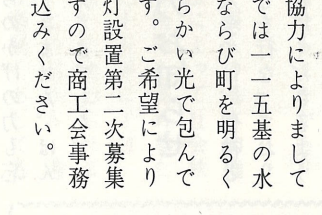 協力によりまして
では一一五基の水
ならび町を明るく
らかい光で包んで
す。ご希望により
灯設置第二次募集
すので商工会事務
込みください。